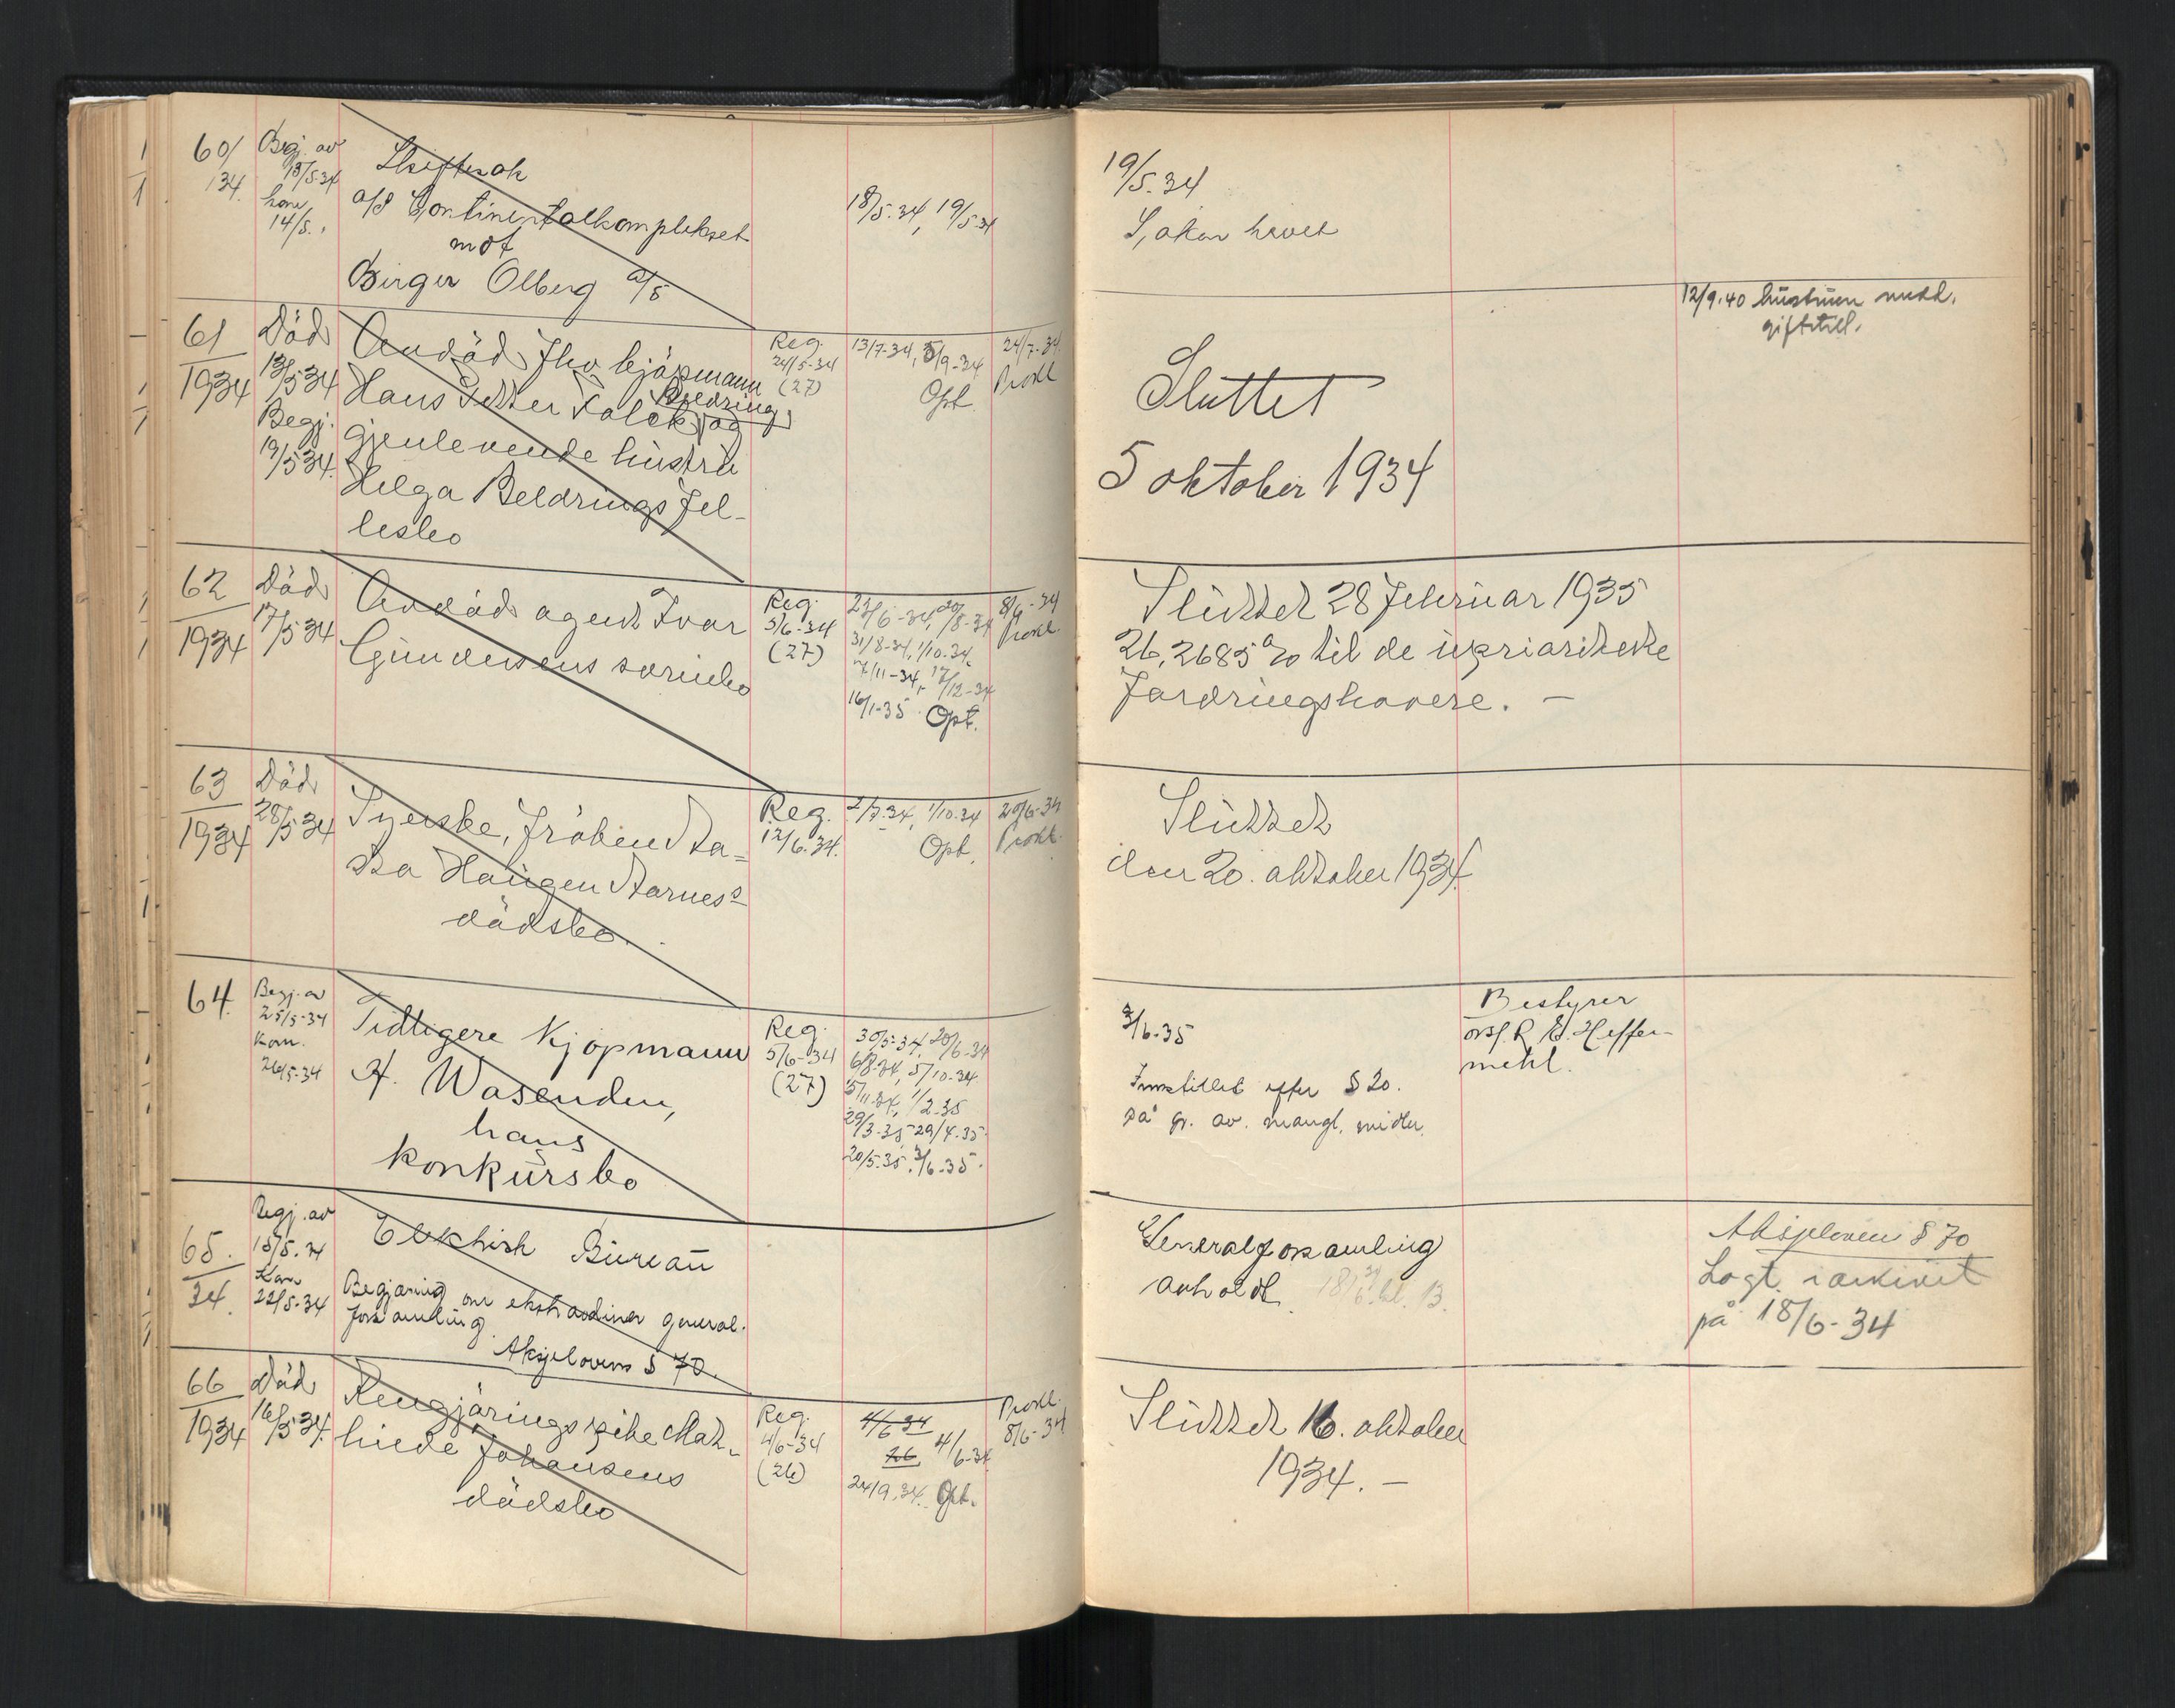 60/
134.
Begj. av
13/5.34
kom.
14/5.
Skiftesak
a/s Continentalkomplekset
mot
Birger Olberg a/s
18/5.34, 19/5.34
19/5.34
Saken hevet
61
1934
Död
13/5 34
Begj.
19/5 34.
Avdöd fhv. kjöpmann
Hans Petter Falck Beldring og
gjenlevende hustru
Helga Beldrings fel-
lesbo
Reg.
24/5-34
(27)
13/7-34, 5/9-34
Opt.
24/7-34.
Prokl
Sluttet
5 oktober 1934
12/9.40 hustruen medd.
giftetill.
62
1934
Död
17/5 34
Avdöd agent Ivar
Gundersens særbo
Reg.
5/6-34
(27)
23/6-34, 20/8-34
31/8-34, 1/10-34.
7/11-34, 17/12-34
16/1-35 Opt.
8/9-34
Prokl.
Sluttet 28 februar 1935
26,2685 % til de upriariterte
fordringshavere. —
63
1934
Död
28/5 34
Syerske, fröken Aa-
sta Haugen Aarnes's
dödsbo.
Reg.
12/6.34.
2/7.34, 1/10.34
Opt.
20/6-34
Prokl.
Sluttet
den 20. oktober 1934.
64.
Begj. av
25/5-34
Kom.
26/5-34
Tidligere Kjøpmann
A. Wasenden,
hans
konkursbo
Reg.
5/6-34
(27)
30/5-34, 20/6-34
6/8-34, 5/10-34
5/11.34, 1/2.35
29/3-35 29/4-35
20/5.35, 3/6-35.
3/6-35
Innstillet efter § 20.
på gr. av. mangl. midler.
Bestyrer
orsf. R. E. Heffer-
mehl.
65.
34.
Begj. av
15/5.34
Kom
22/5-34
Elektrisk Bureau
Begjæring om ekstraordinær general-
forsamling.
Aksjelovens § 70.
Generalforsamling
avholdt 18/6 34 kl. 13.
Aksjeloven § 70
Lagt i arkivet
på 18/6-34
66
1934
Död
16/5 34.
Rengjöringspike Mat-
hilde Johansens
dödsbo
Reg.
4/6-34
(26)
4/6 34
26 4/6-34
24/9.34. Opt.
Prokl.
8/6-34
Sluttet 16. oktober
1934. —